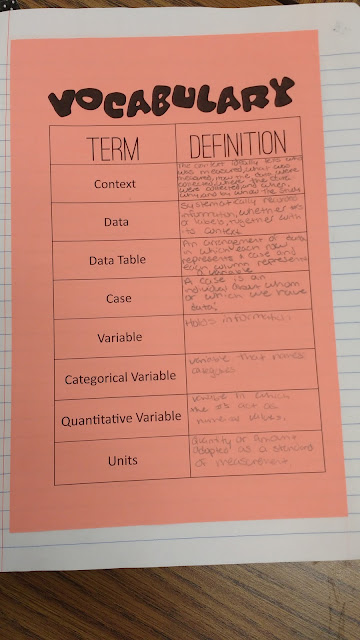 VOCABULARY
TERM
DEFINITION
Context
The context ideally tells who
was measured, what was
measured, how the data were
collected, where the data
were collected, and when,
why, and by whom the study
Data
Systematically recorded
information, whether #s
or labels, together with
its context
Data Table
An arrangement of data
in which each row
represents a case and
each column represents
a variable
Case
A case is an
individual about whom
or which we have
data.
Variable
Holds information
Categorical Variable
variable that names
Quantitative Variable
variable in which
the #s act as
numerical values.
Units
quantity or amount
adopted as a standard
of measurement